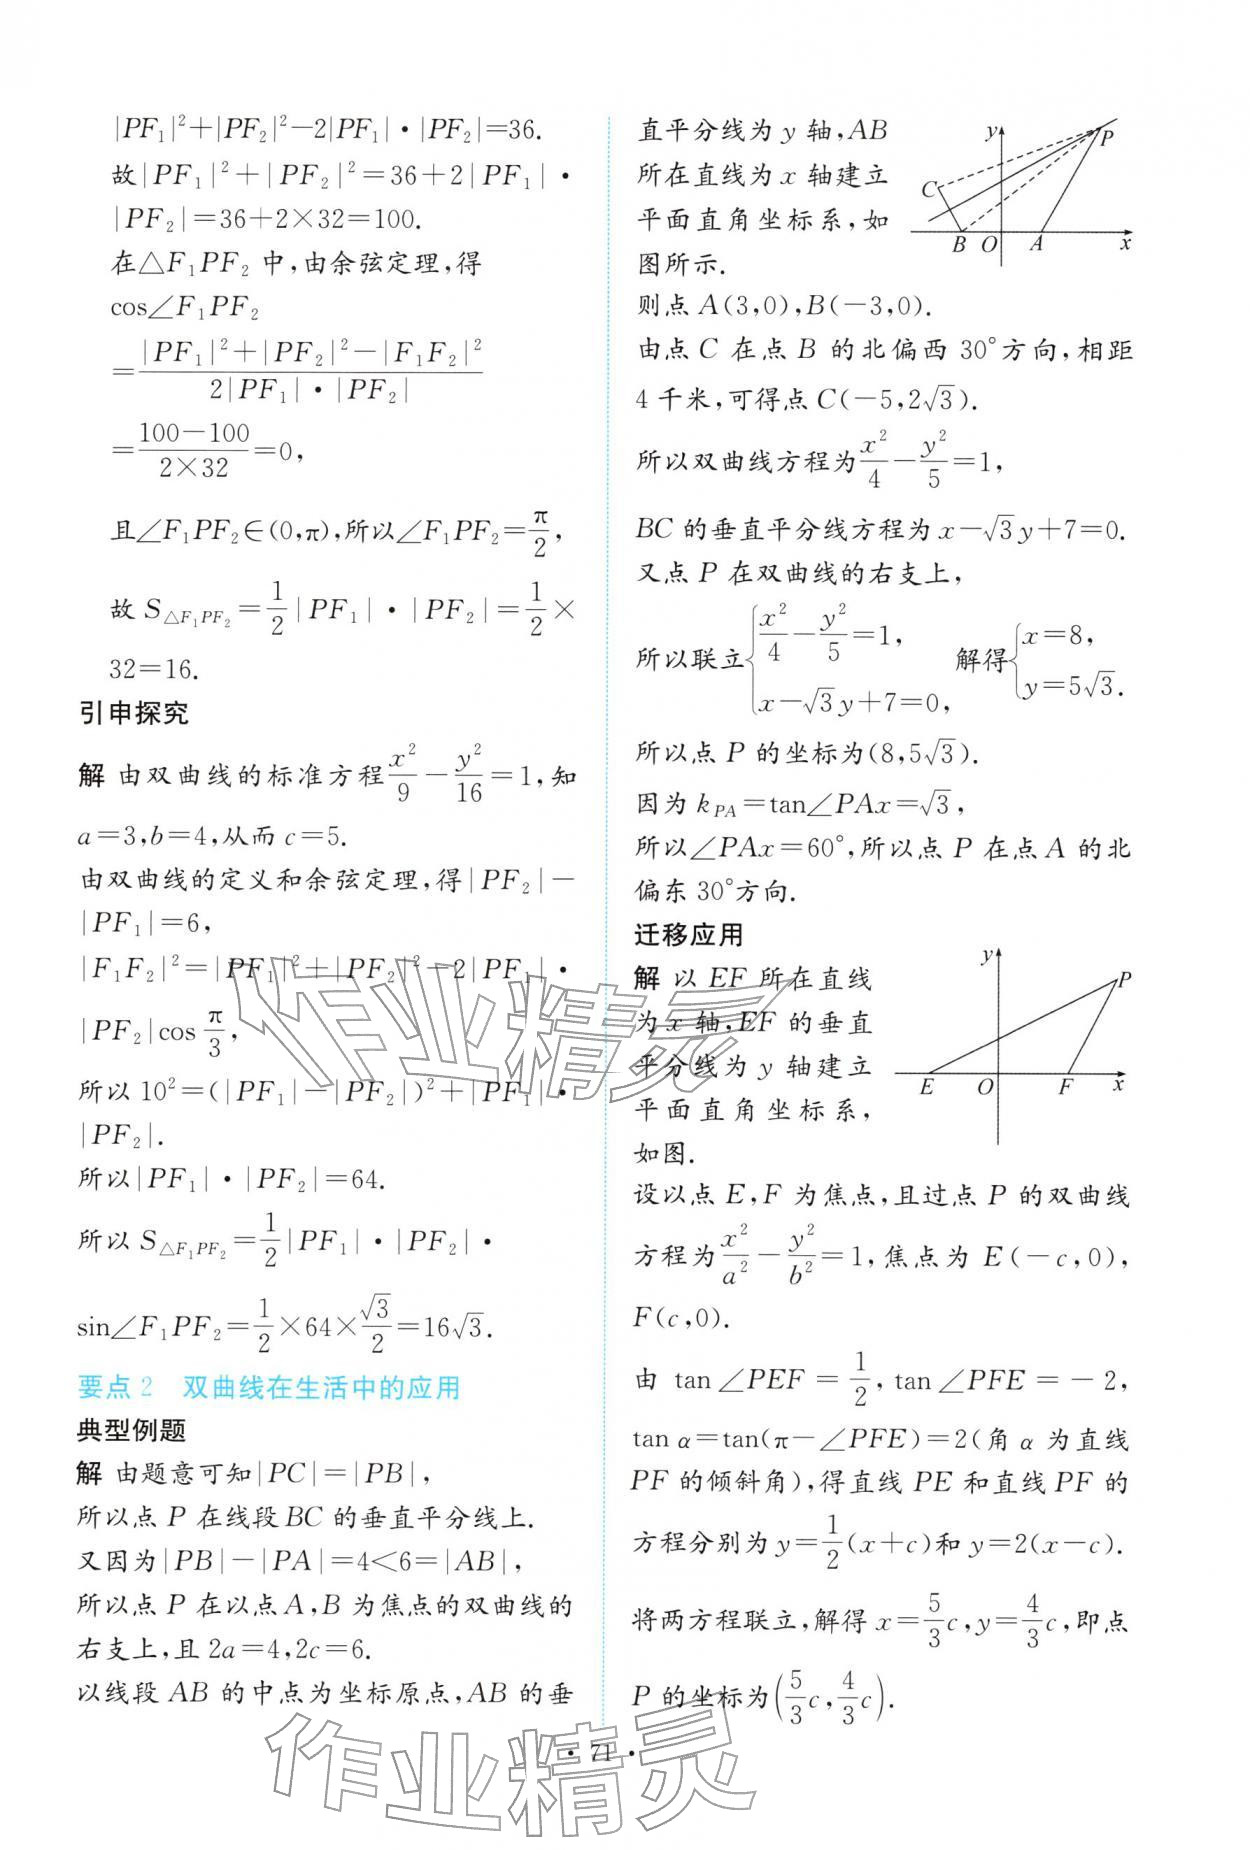 |PF₁|²+|PF₂|²−2|PF₁|·|PF₂|=36.
故|PF₁|²+|PF₂|²=36+2|PF₁|·
|PF₂|=36+2×32=100.
在△F₁PF₂中,由余弦定理,得
cos∠F₁PF₂
=(|PF₁|²+|PF₂|²−|F₁F₂|²)/(2|PF₁|·|PF₂|)
=(100−100)/(2×32)=0,
且∠F₁PF₂∈(0,π),所以∠F₁PF₂=π/2,
故 S△F₁PF₂=1/2|PF₁|·|PF₂|=1/2×
32=16.
引申探究
解 由双曲线的标准方程x²/9−y²/16=1,知
a=3,b=4,从而 c=5.
由双曲线的定义和余弦定理,得|PF₂|−
|PF₁|=6,
|F₁F₂|²=|PF₁|²+|PF₂|²−2|PF₁|·
|PF₂|cos π/3,
所以 10²=(|PF₁|−|PF₂|)²+|PF₁|·
|PF₂|.
所以|PF₁|·|PF₂|=64.
所以 S△F₁PF₂=1/2|PF₁|·|PF₂|·
sin∠F₁PF₂=1/2×64×√3/2=16√3.
要点2 双曲线在生活中的应用
典型例题
解 由题意可知|PC|=|PB|,
所以点 P 在线段BC 的垂直平分线上.
又因为|PB|−|PA|=4<6=|AB|,
所以点 P 在以点A,B 为焦点的双曲线的
右支上,且 2a=4,2c=6.
以线段 AB 的中点为坐标原点,AB 的垂
直平分线为 y 轴,AB
所在直线为 x 轴建立
平面直角坐标系,如
图所示.
y
P
C
B O A x
则点 A(3,0),B(−3,0).
由点 C 在点 B 的北偏西 30°方向,相距
4 千米,可得点 C(−5,2√3).
所以双曲线方程为x²/4−y²/5=1,
BC 的垂直平分线方程为 x−√3y+7=0.
又点 P 在双曲线的右支上,
所以联立{x²/4−y²/5=1, x−√3y+7=0, 解得{x=8, y=5√3.
所以点 P 的坐标为(8,5√3).
因为 kPA=tan∠PAx=√3,
所以∠PAx=60°,所以点 P 在点A 的北
偏东 30°方向.
迁移应用
解 以 EF 所在直线
为 x 轴,EF 的垂直
平分线为 y 轴建立
平面直角坐标系,
如图.
y
P
E O F x
设以点 E,F 为焦点,且过点 P 的双曲线
方程为x²/a²−y²/b²=1,焦点为 E(−c,0),
F(c,0).
由 tan∠PEF=1/2,tan∠PFE=−2,
tan α=tan(π−∠PFE)=2(角 α 为直线
PF 的倾斜角),得直线 PE 和直线 PF 的
方程分别为 y=1/2(x+c)和 y=2(x−c).
将两方程联立,解得 x=5/3c,y=4/3c,即点
P 的坐标为(5/3c,4/3c).
作业精灵
作业精灵
· 71 ·